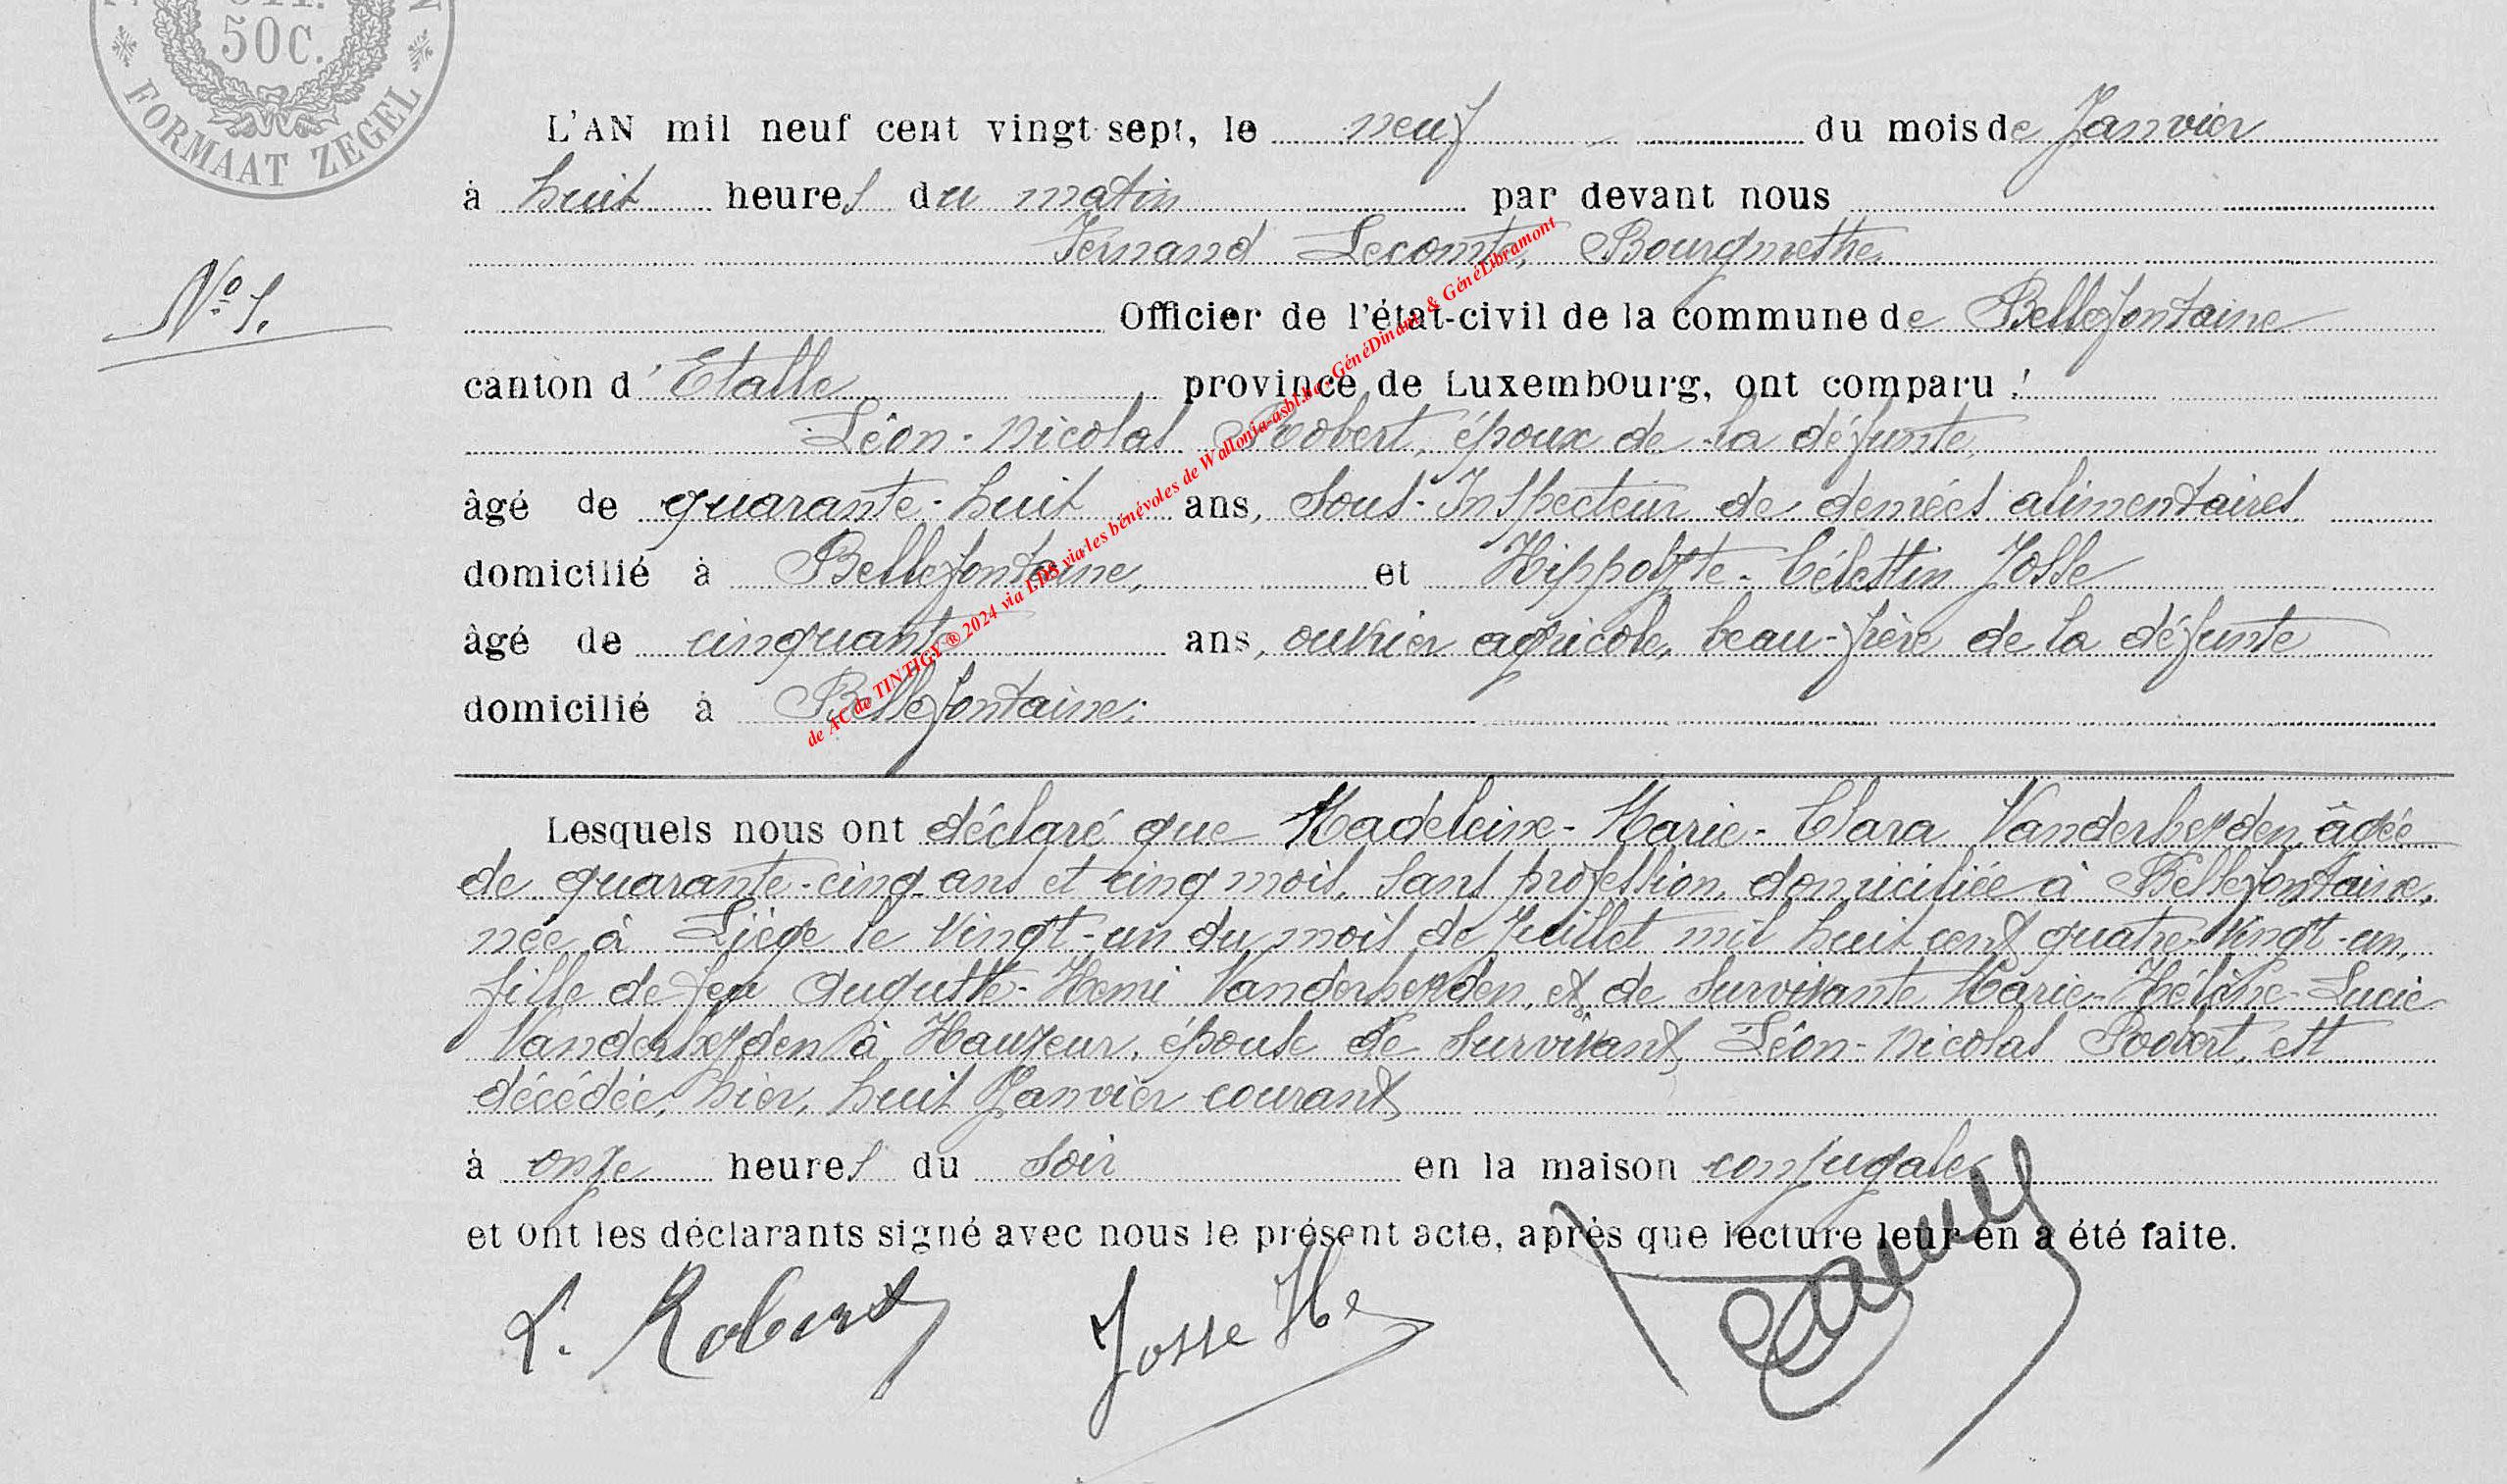 50C.
FORMAAT ZEGEL
L'AN mil neuf cent vingt sept, le neuf du mois de Janvier
à huit heures du matin par devant nous
Fernand Lecomte, Bourgmestre
N° 1.
Officier de l'état-civil de la commune de Bellefontaine
canton d'Etalle province de Luxembourg, ont comparu :
Léon-Nicolas Robert, époux de la défunte,
âgé de quarante-huit ans, Sous-Inspecteur de denrées alimentaires
domicilié à Bellefontaine, et Hippolyte-Célestin Josse
âgé de cinquante ans, ouvrier agricole, beau-frère de la défunte
domicilié à Bellefontaine;
de AC de TINTIGY ® 2024 via LDS via les bénévoles de Wallonia-asbl.be, GénéDinant & GénéLibramont
Lesquels nous ont déclaré que Madeleine-Marie-Clara Vanderheyden, âgée
de quarante-cinq ans et cinq mois, sans profession, domiciliée à Bellefontaine,
née à Liège le vingt-un du mois de Juillet mil huit cent quatre-vingt-un,
fille de feu Auguste-Henri Vanderheyden, et de survivante Marie-Hélène-Lucie
Vanderheyden à Hauzeur, épouse de survivant Léon-Nicolas Robert, est
décédée, hier, huit Janvier courant
à onze heures du soir en la maison conjugale
et ont les déclarants signé avec nous le présent acte, après que lecture leur en a été faite.
L. Robert Josse Hte